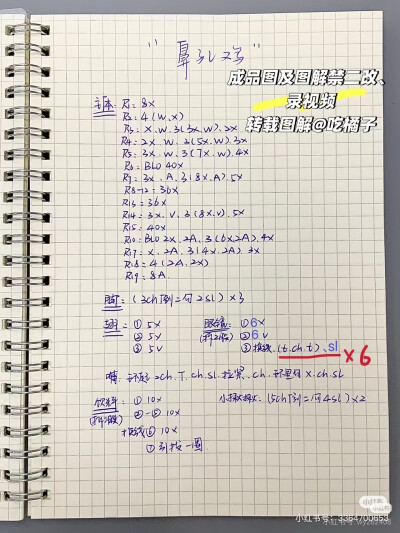 "鼻孔鸡"
成品图及图解禁二改、
录视频
转载图解@吃橘子
主体: R1: 8X
R2: 4(W,X)
R3: X.W.3(3X.W).2X
R4: 2X.W.3(5X.W).3X
R5: 3X.W.3(7X.W).4X
R6: BLO 40X
R7: 3X.A.3(8X.A).5X
R8-12: 36X
R13: 36X
R14: 3X.V.3(8X.V).5X
R15: 40X
R16: BLO 2X.2A.3(6X2A).4X
R17: X.2A.3(4X.2A).3X
R18: 4(2A.2X)
R19: 8A
脚: (3ch倒二勾2sl)×3
翅: ① 5X
② 5X
③ 5V
①6X
②6V
③换线.(t.ch.t)、sl ×6
嘴: 环起: 2ch.T.ch.sl.拉紧.ch.环里勾X.ch.sl
① 10X
②-⑤ 10X
换线⑥ 10X
⑦引拔一圈
(5ch倒二勾4sl)×2
小红书号:3364700653